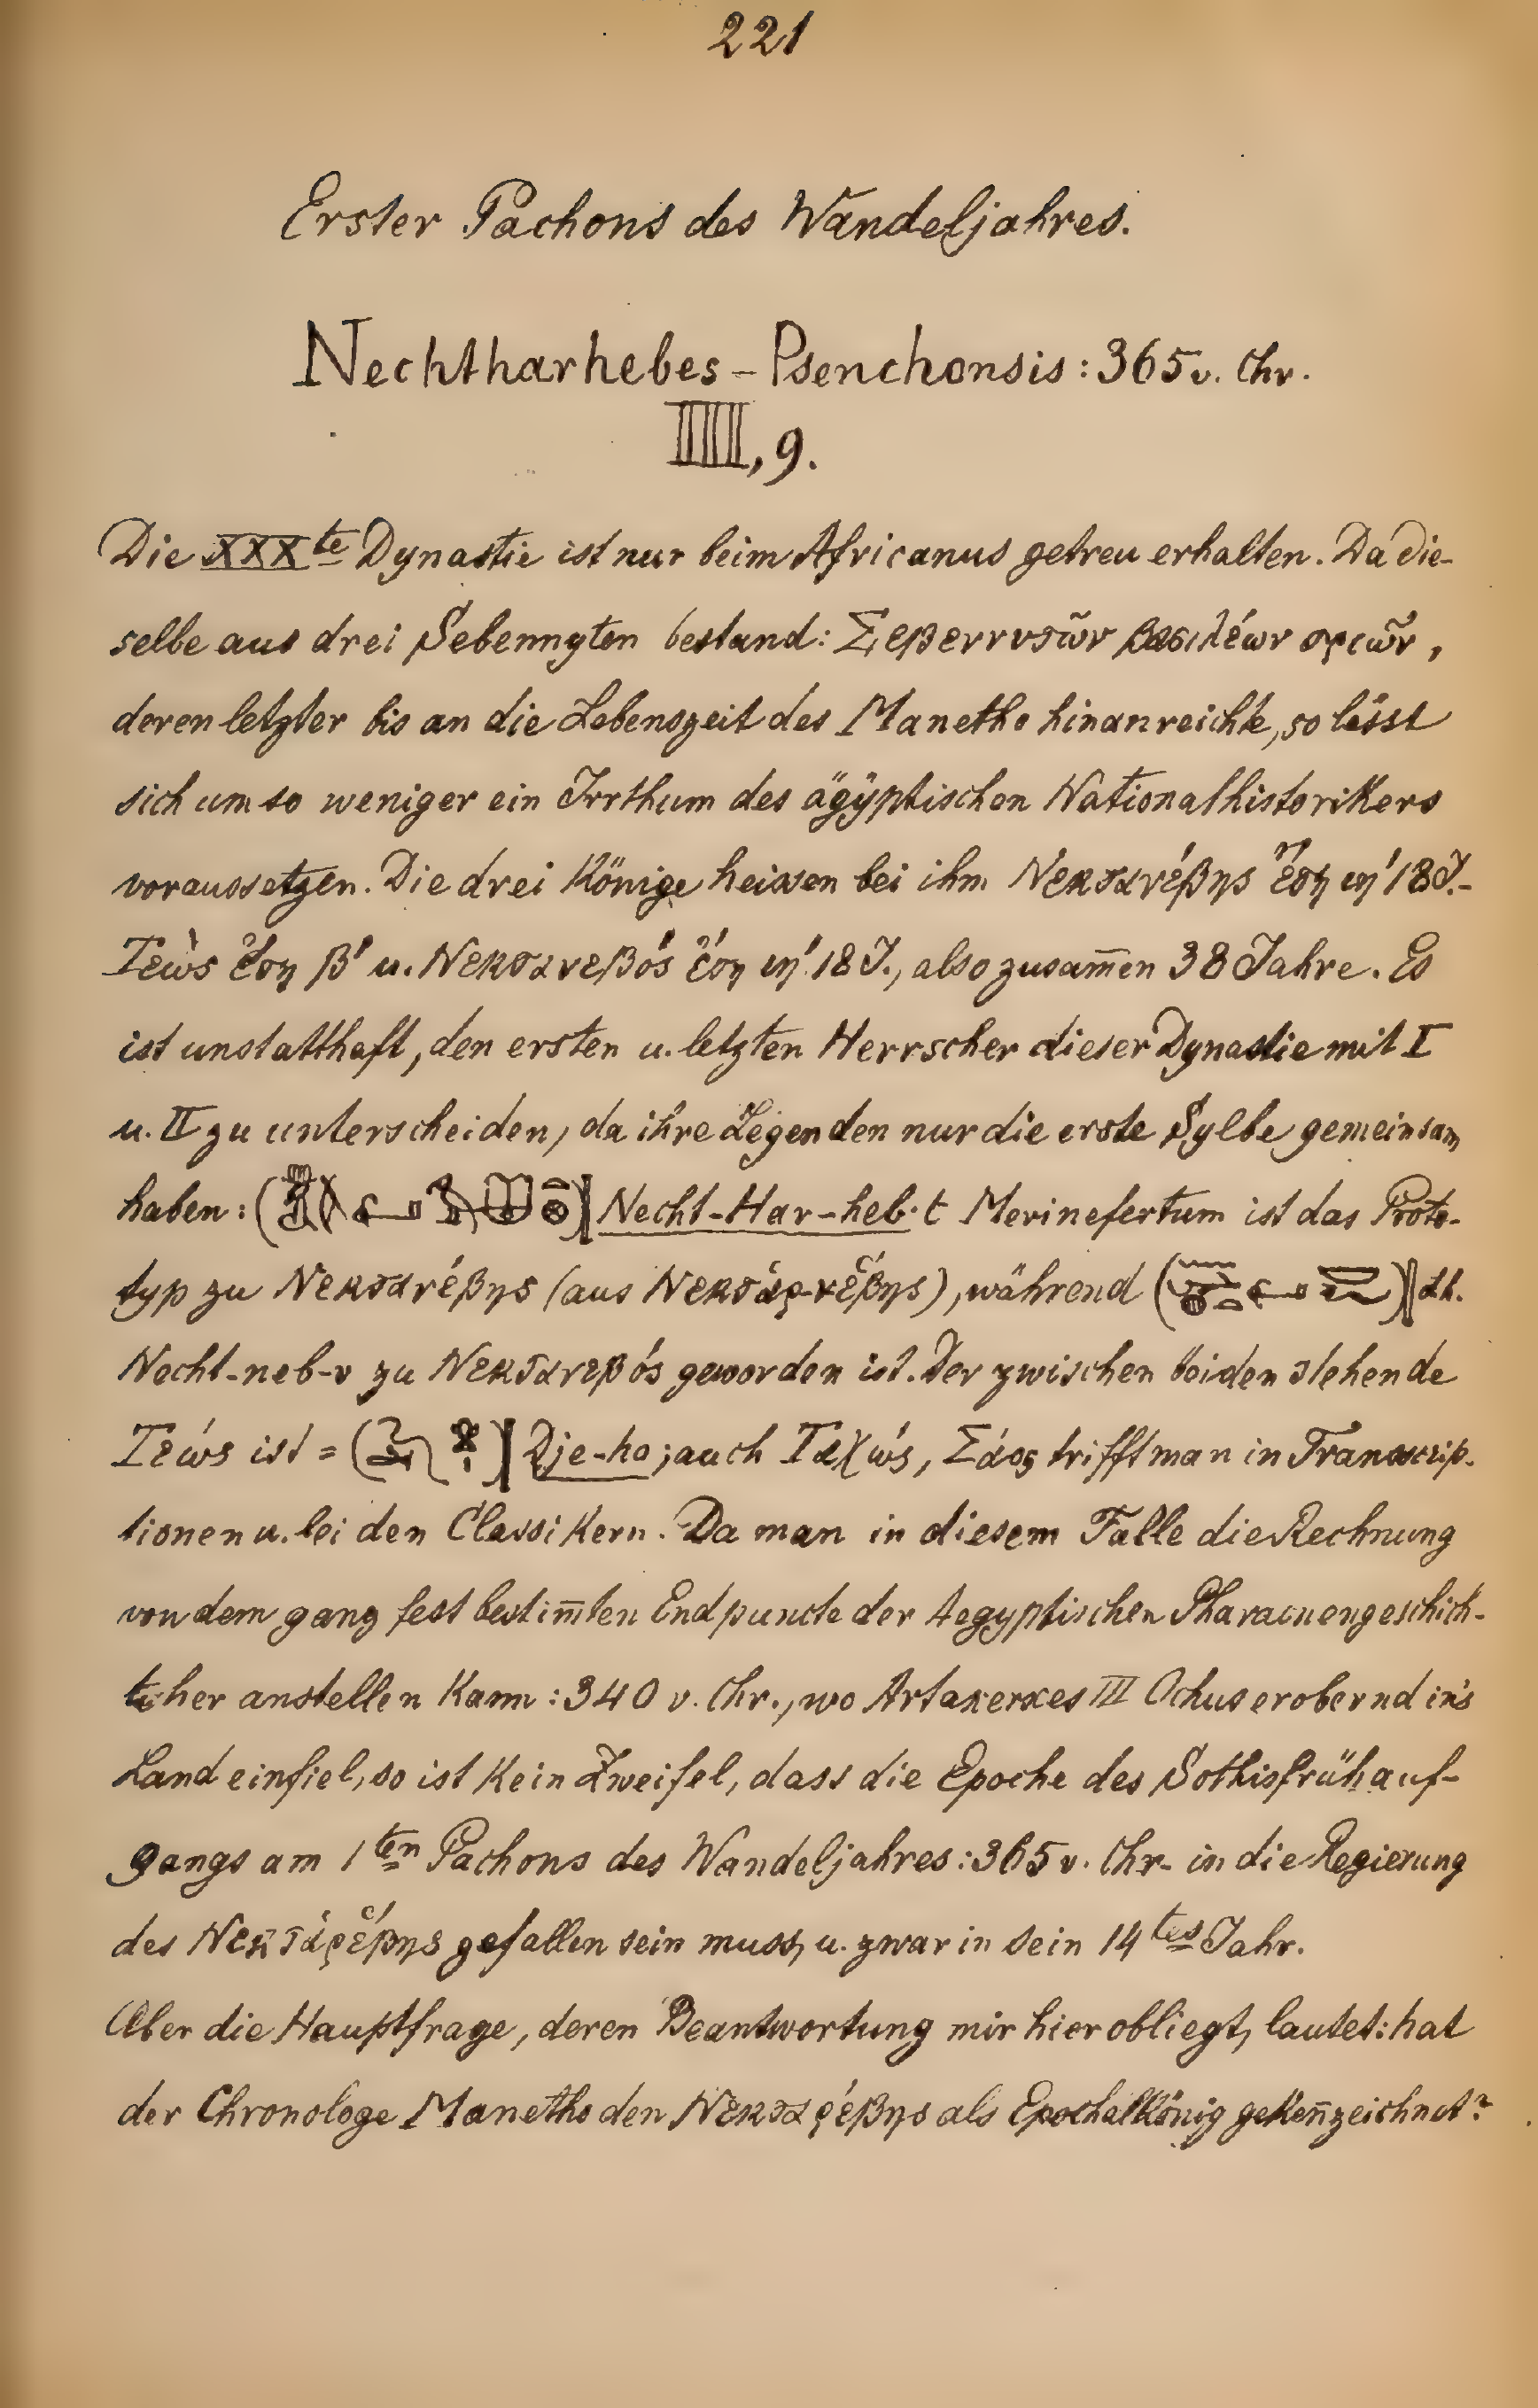 221
Erster Pachons des Wandeljahres.
Nechtharhebes – Psenchonsis : 365 v. Chr.
IIII, 9.
Die XXXte Dynastie ist nur beim Africanus getreu erhalten. Da die-
selbe aus drei Sebennyten bestand: Σεβεννυτῶν βασιλέων τριῶν,
deren letzter bis an die Lebenszeit des Manetho hinanreichte, so lässt
sich um so weniger ein Irrthum des ägyptischen Nationalhistorikers
voraussetzen. Die drei Könige heissen bei ihm Νεκτανέβης ἔτη ιη' 18 J.-
Τεὼς ἔτη β' u. Νεκτανεβός ἔτη ιη' 18 J., also zusam̄en 38 Jahre. Es
ist unstatthaft, den ersten u. letzten Herrscher dieser Dynastie mit I
u. II zu unterscheiden, da ihre Legenden nur die erste Sylbe gemeinsam
haben: Necht-Har-heb.t Merinefertum ist das Proto-
typ zu Νεκτανέβης (aus ), während d.h.
Necht-neb-v zu Νεκτανεβός geworden ist. Der zwischen beiden stehende
Τεώς ist = Dje-ho; auch Ταχώς, Σάος trifft man in Transcrip-
tionen u. bei den Classikern. Da man in diesem Falle die Rechnung
von dem ganz fest bestim̄ten Endpuncte der Aegyptischen Pharaonengeschich-
te her anstellen kann: 340 v. Chr., wo Artaxerxes III Ochus erobernd in's
Land einfiel, so ist kein Zweifel, dass die Epoche des Sothisfrühauf-
gangs am 1ten Pachons des Wandeljahres: 365 v. Chr. in die Regierung
des gefallen sein muss, u. zwar in sein 14tes Jahr.
Aber die Hauptfrage, deren Beantwortung mir hier obliegt, lautet: hat
der Chronologe Manetho den als Epochalkönig geken̄zeichnet?